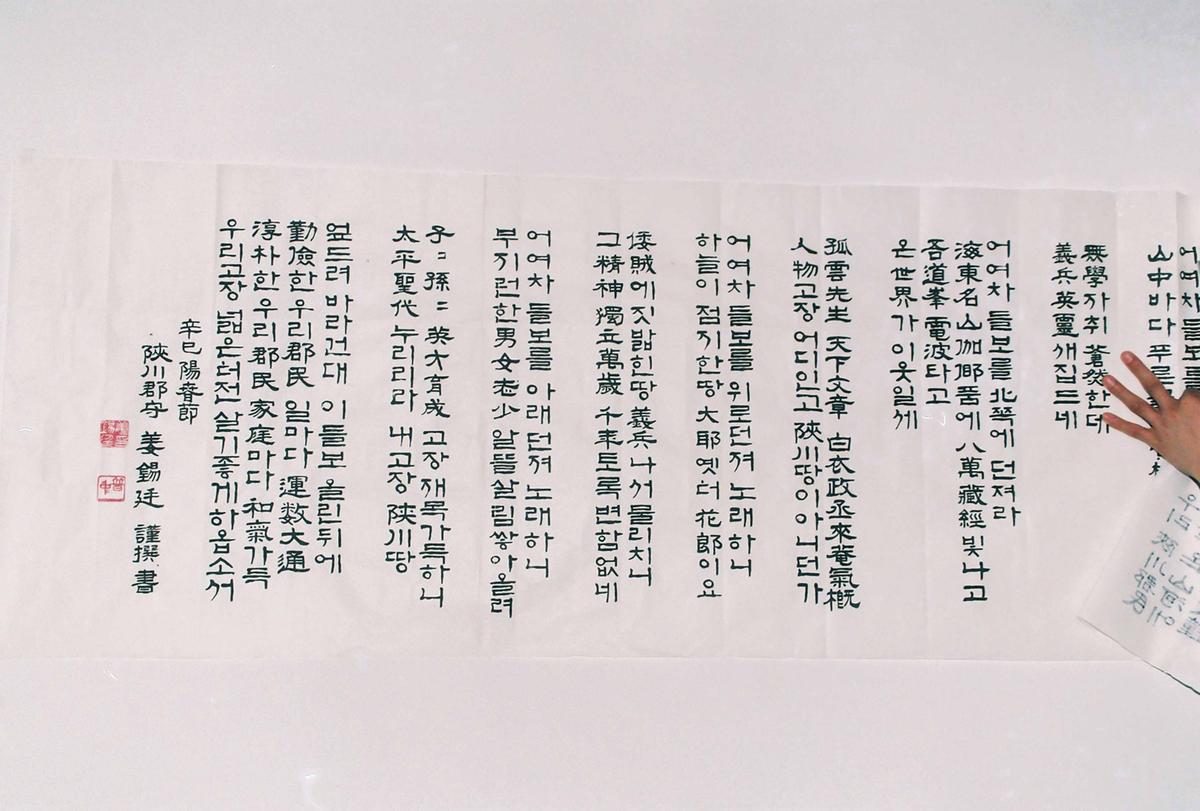 어여차 들보를
山中바다 푸르
無學자취 蒼然한데
義兵英靈 깨집드네
어여차 들보를 北쪽에 던져라
海東名山 伽倻품에 八萬藏經 빛나고
吾道峯 電波타고
온世界가 이웃일세
孤雲先生 天下文章 白衣政丞 來菴氣槪
人物고장 어디인고 陜川땅이 아니던가
어여차 들보를 위로던져 노래하니
하늘이 점지한땅 大耶옛터 花郎이요
倭賊에 짓밟힌땅 義兵나서 물리치니
그精神 獨立萬歲 千年토록 변함없네
어여차 들보를 아래던져 노래하니
부지런한 男女老少 알뜰살림 쌓아올려
子〻孫〻 英才育成 고장재목 가득하니
太平聖代 누리리라 내고장 陜川땅
엎드려 바라건대 이들보 올린뒤에
勤儉한 우리郡民 일마다 運數大通
淳朴한 우리郡民 家庭마다 和氣가득
우리고장 넓은터전 살기좋게 하옵소서
辛巳 陽春節
陜川郡守 姜錫廷 謹撰書